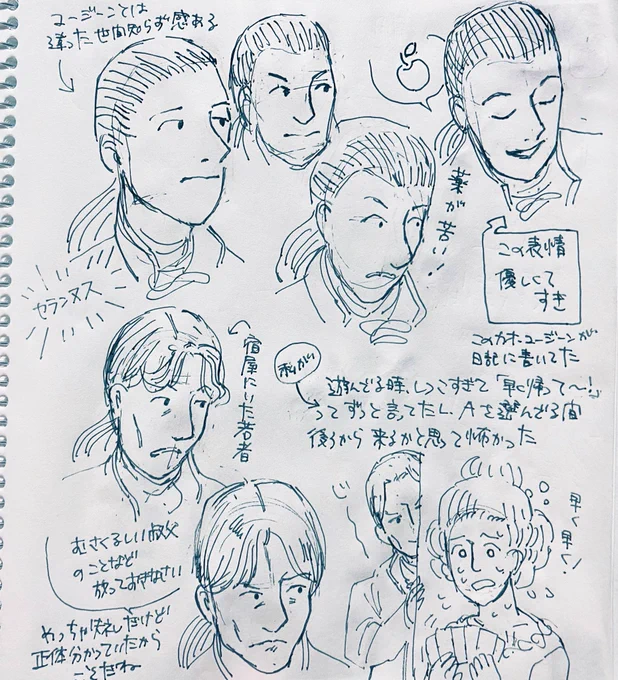 ユージーンとは
違った世間知らず感ある
薬が苦い!
この表情
優しくて
すき
このカオユージーンが
日記に書いてた
セランヌス
宿屋にいた若者
私が
遊んでる時、しつこすぎて「早く帰って〜!」
ってずっと言ってたし、Aを選んでる間
後ろから来るかと思って怖かった
早く早く
むさくるしい叔父
のことなど
放っておきなさい
やっちゃダメだけど
正体分かっていたから
こそだね